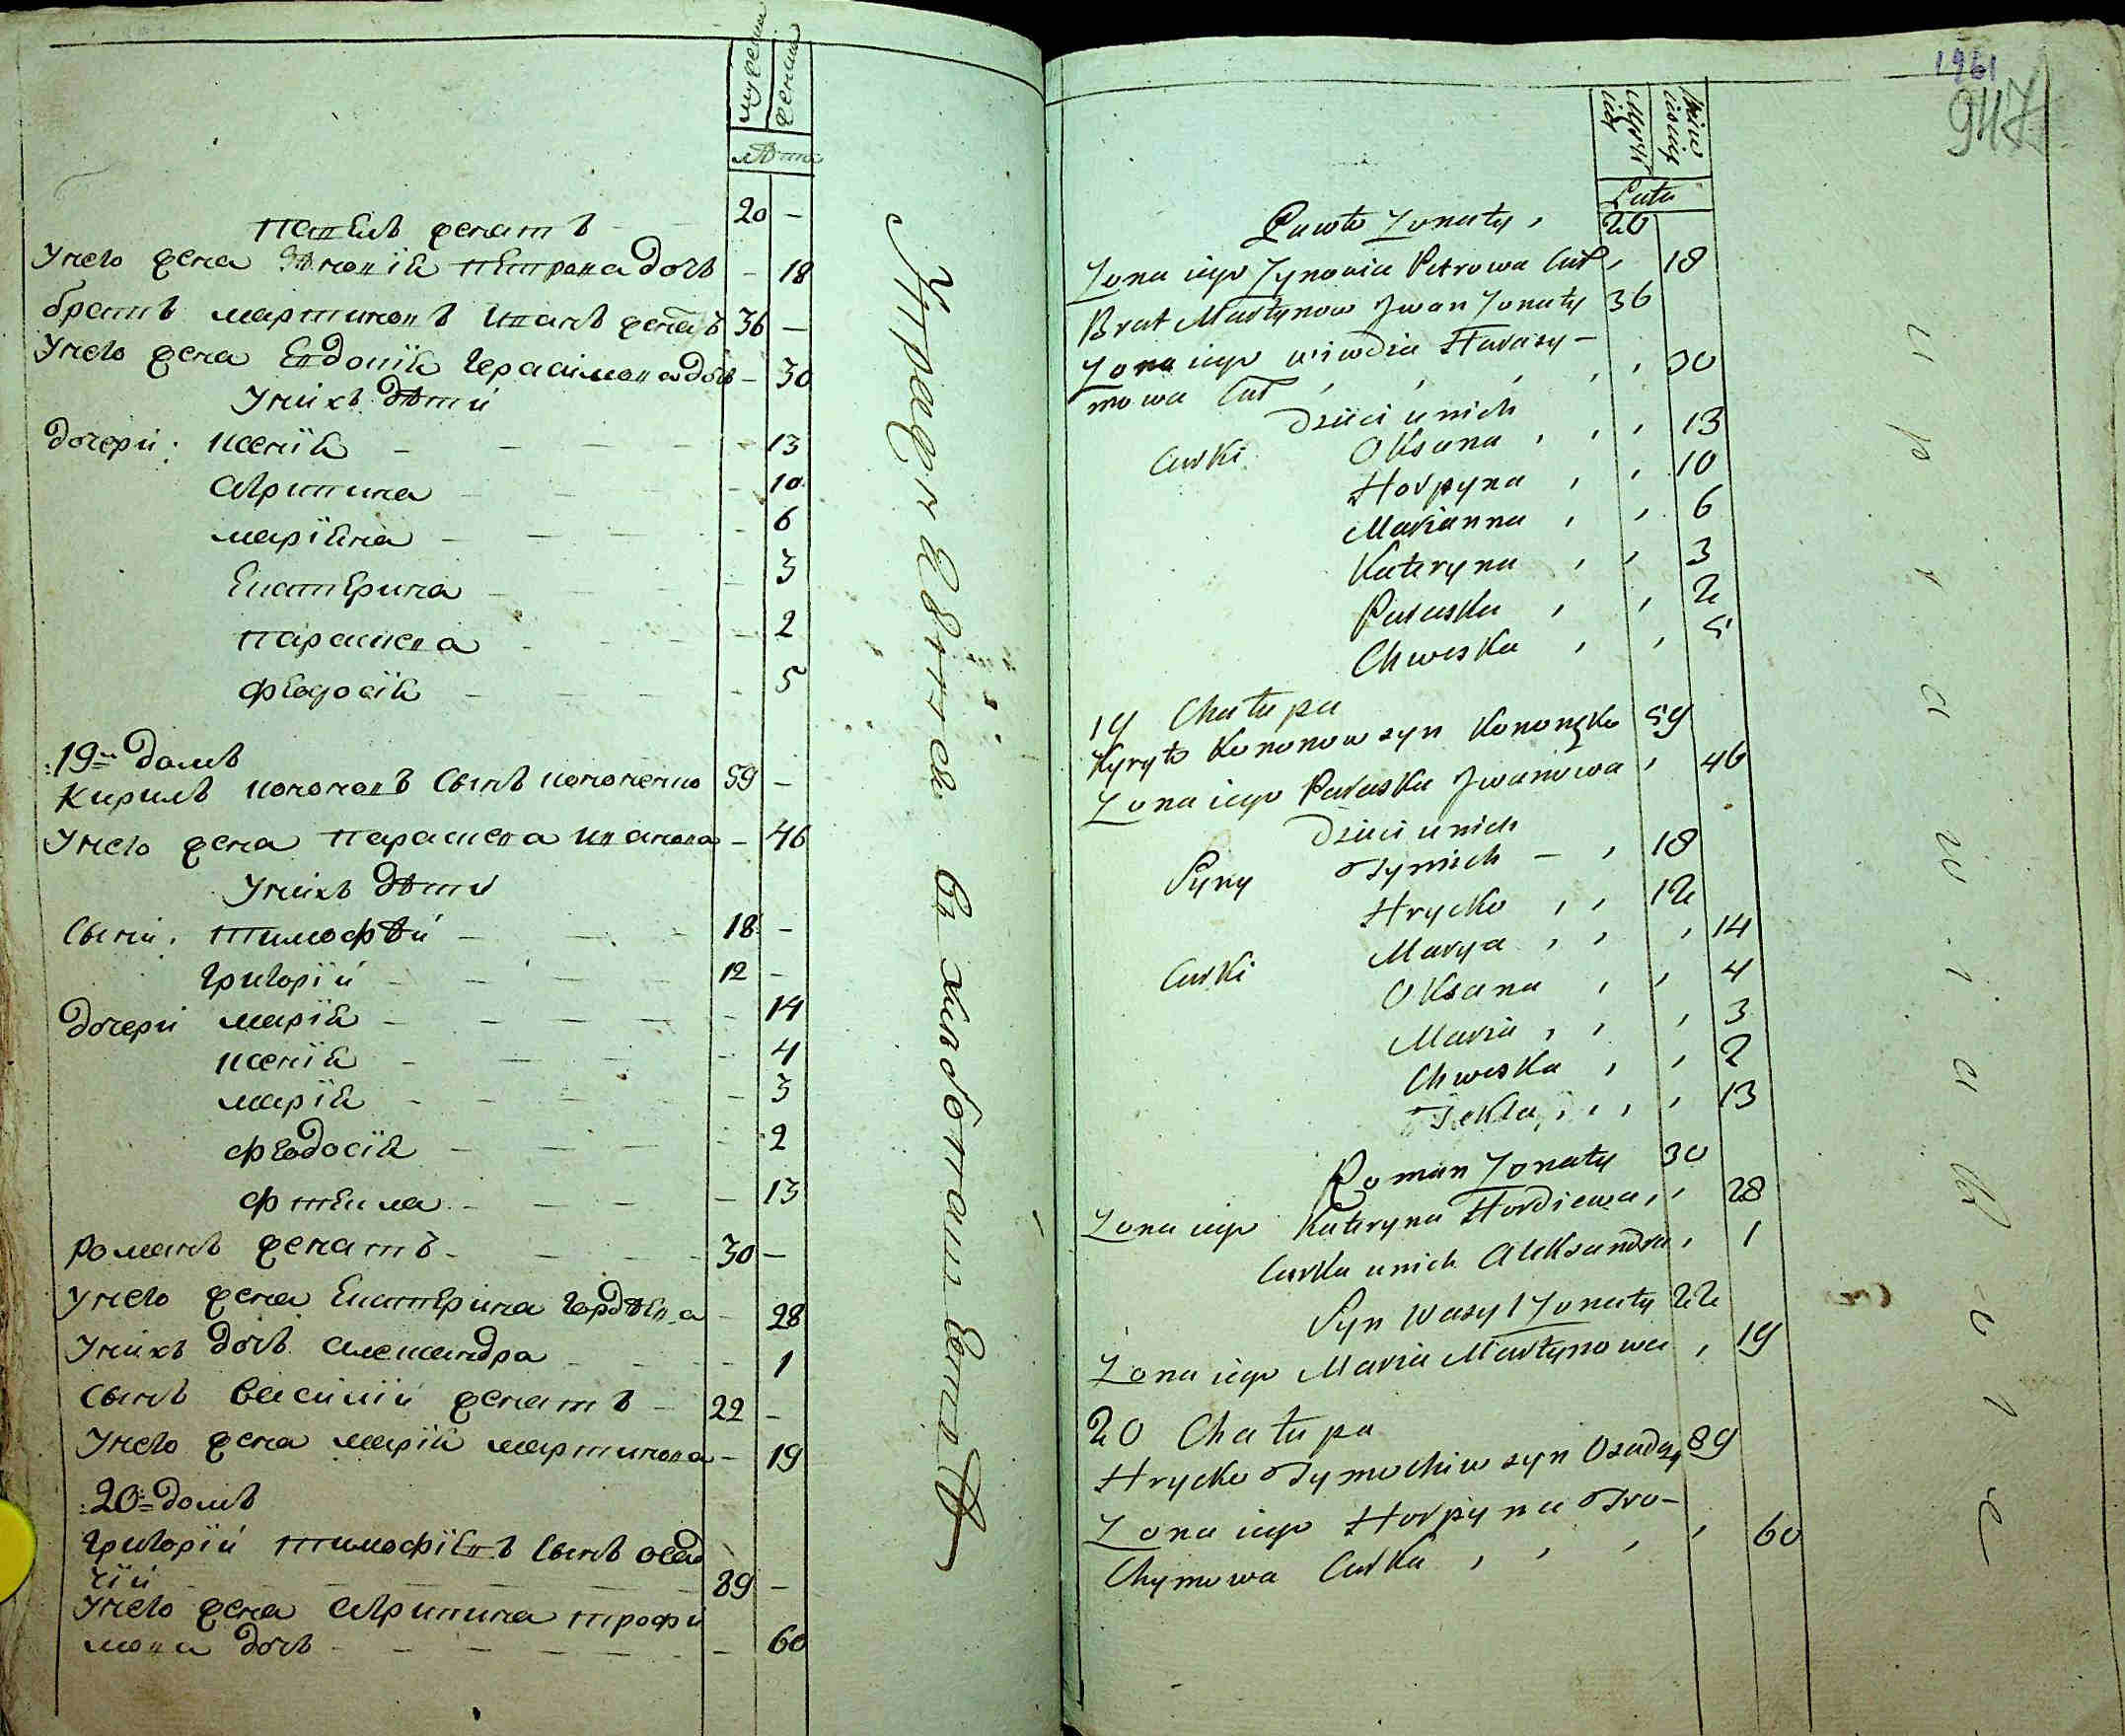 мужеска
женска
лѣта
Павелъ женатъ 20 –
Унего жена Зѣновія Петрова дочь – 18
братъ мартиновъ Иванъ женатъ 36 –
Унего жена Евдокія Герасимова дочь – 30
Унихъ дѣти
дочери: Ксенія – 13
Агрипина – 10
маріяна – 6
Екатерина – 3
Параскева – 2
Феодосія – 5
19й домъ
Кирилъ Кононовъ сынъ Кононенко 59 –
Унего жена Параскева Иванова – 46
Унихъ дѣти
Сыни: Тимофѣй 18 –
Григорій 12 –
дочери марія – 14
Ксенія – 4
марія – 3
Феодосія – 2
Фтекла – 13
Романъ женатъ 30 –
Унего жена Екатерина Гордѣева – 28
Унихъ дочь Александра – 1
Сынъ Василій женатъ 22 –
Унего жена марія мартинова – 19
20й домъ
Григорій Тимофіевъ сынъ осад
чій 89 –
Унего жена Агрипина трофи
мова дочь – 60
1961
947
Lata
Pawło Żonaty 20
Żona iego Zynowia Petrowa Cur 18
Brat Martynow Jwan Żonaty 36
Żona iego Wiwdia Harasy–
mowa Cur 30
Dzieci u nich
Curki Oksana 13
Horpyna 10
Marianna 6
Kateryna 3
Paraska 2
Chweska 5
19 Chałupa
Kyryło Kononow syn Kononęko 59
Żona iego Paraska Jwanowa 46
Dzieci u nich
Syny Tymich – 18
Hrycko 12
Curki Marya 14
Oksana 4
Maria 3
Chweska 2
Tekla 13
Roman Żonaty 30
Żona iego Kateryna Hordiewa 28
Curka u nich Aleksandra 1
Syn Wasyl Żonaty 22
Żona iego Maria Martynowa 19
20 Chałupa
Hrycko Tymochiw syn Osadzy 89
Żona iego Horpyna Tro–
Chymowa Curka 60